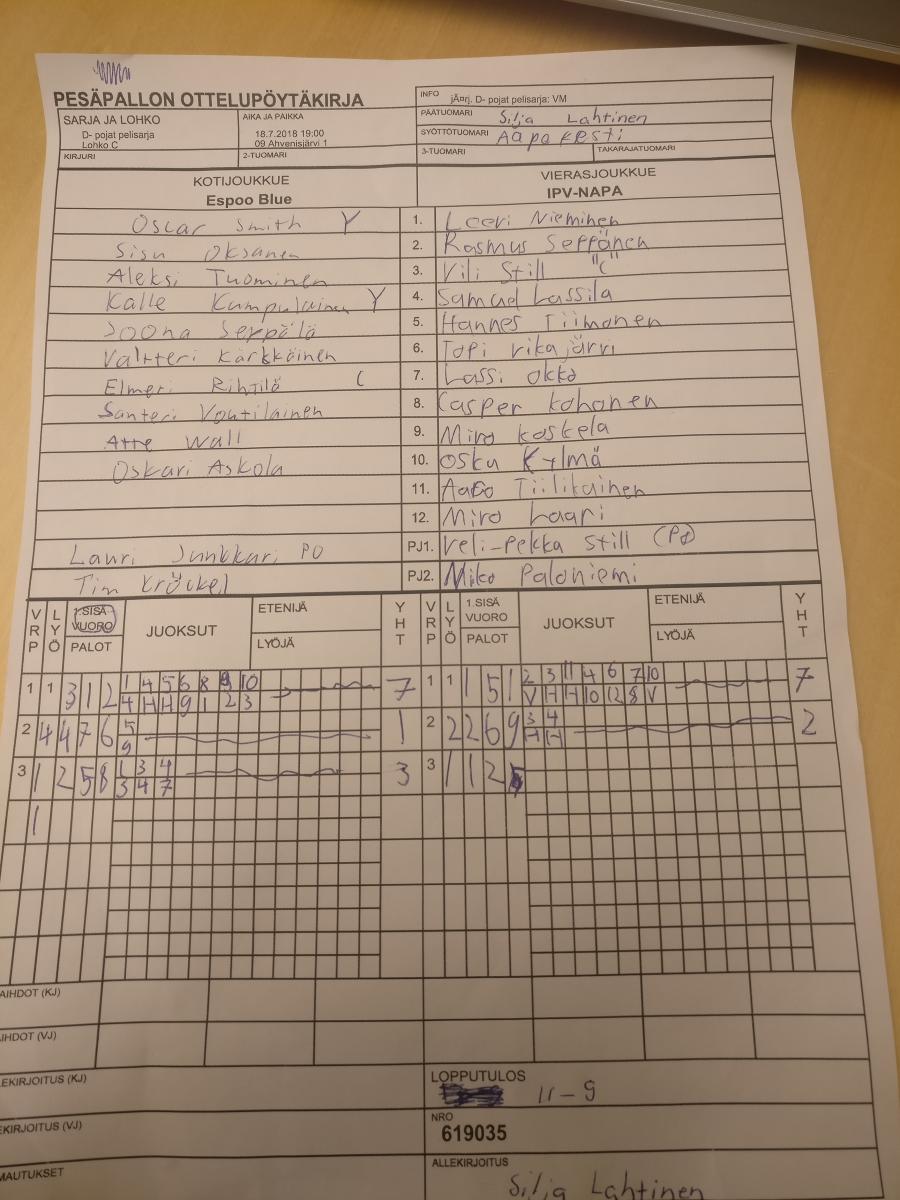 PESÄPALLON OTTELUPÖYTÄKIRJA
INFO jÃ¤rj. D- pojat pelisarja: VM
SARJA JA LOHKO
D- pojat pelisarja
Lohko C
AIKA JA PAIKKA
18.7.2018 19:00
09 Ahvenisjärvi 1
PÄÄTUOMARI Silja Lahtinen
SYÖTTÖTUOMARI Aapa Kesti
KIRJURI 2-TUOMARI 3-TUOMARI TAKARAJATUOMARI
KOTIJOUKKUE VIERASJOUKKUE
Espoo Blue IPV-NAPA
Oscar Smith Y 1. Leevi Nieminen
Sisu Oksanen 2. Rasmus Seppänen
Aleksi Tuominen 3. Vili Still "C"
Kalle Kumpulainen Y 4. Samuel Lassila
Joona Seppälä 5. Hannes Tiimonen
Valtteri Kärkkäinen 6. Topi rikajärvi
Elmeri Rihtilä C 7. Lassi Okko
Santeri Voutilainen 8. Casper kohonen
Atte Wall 9. Miro koskela
Oskari Askola 10. Osku Kylmä
11. Tiilikainen
12. Miro Laari
Lauri Junkkari, PJ1. Veli-Pekka Still
Tim PJ2. Miko Paloniemi
VRP LYÖ 1.SISÄ VUORO PALOT JUOKSUT ETENIJÄ LYÖJÄ YHT VRP LYÖ 1.SISÄ VUORO PALOT JUOKSUT ETENIJÄ LYÖJÄ YHT
1 1 3 1 2 1 4 5 6 8 9 10 7 1 1 1 5 1 2 3 11 4 6 7 10 7
4 H H 9 1 2 3 V H H 10 12 8 V
2 4 4 7 6 5 1 2 2 2 6 9 3 4 2
9 H H
3 1 2 5 8 1 3 4 3 3 1 1 2
3 4 7
1
AIHDOT (KJ)
AIHDOT (VJ)
EKIRJOITUS (KJ) LOPPUTULOS
11-9
EKIRJOITUS (VJ) NRO
619035
MAUTUKSET ALLEKIRJOITUS
Silja Lahtinen